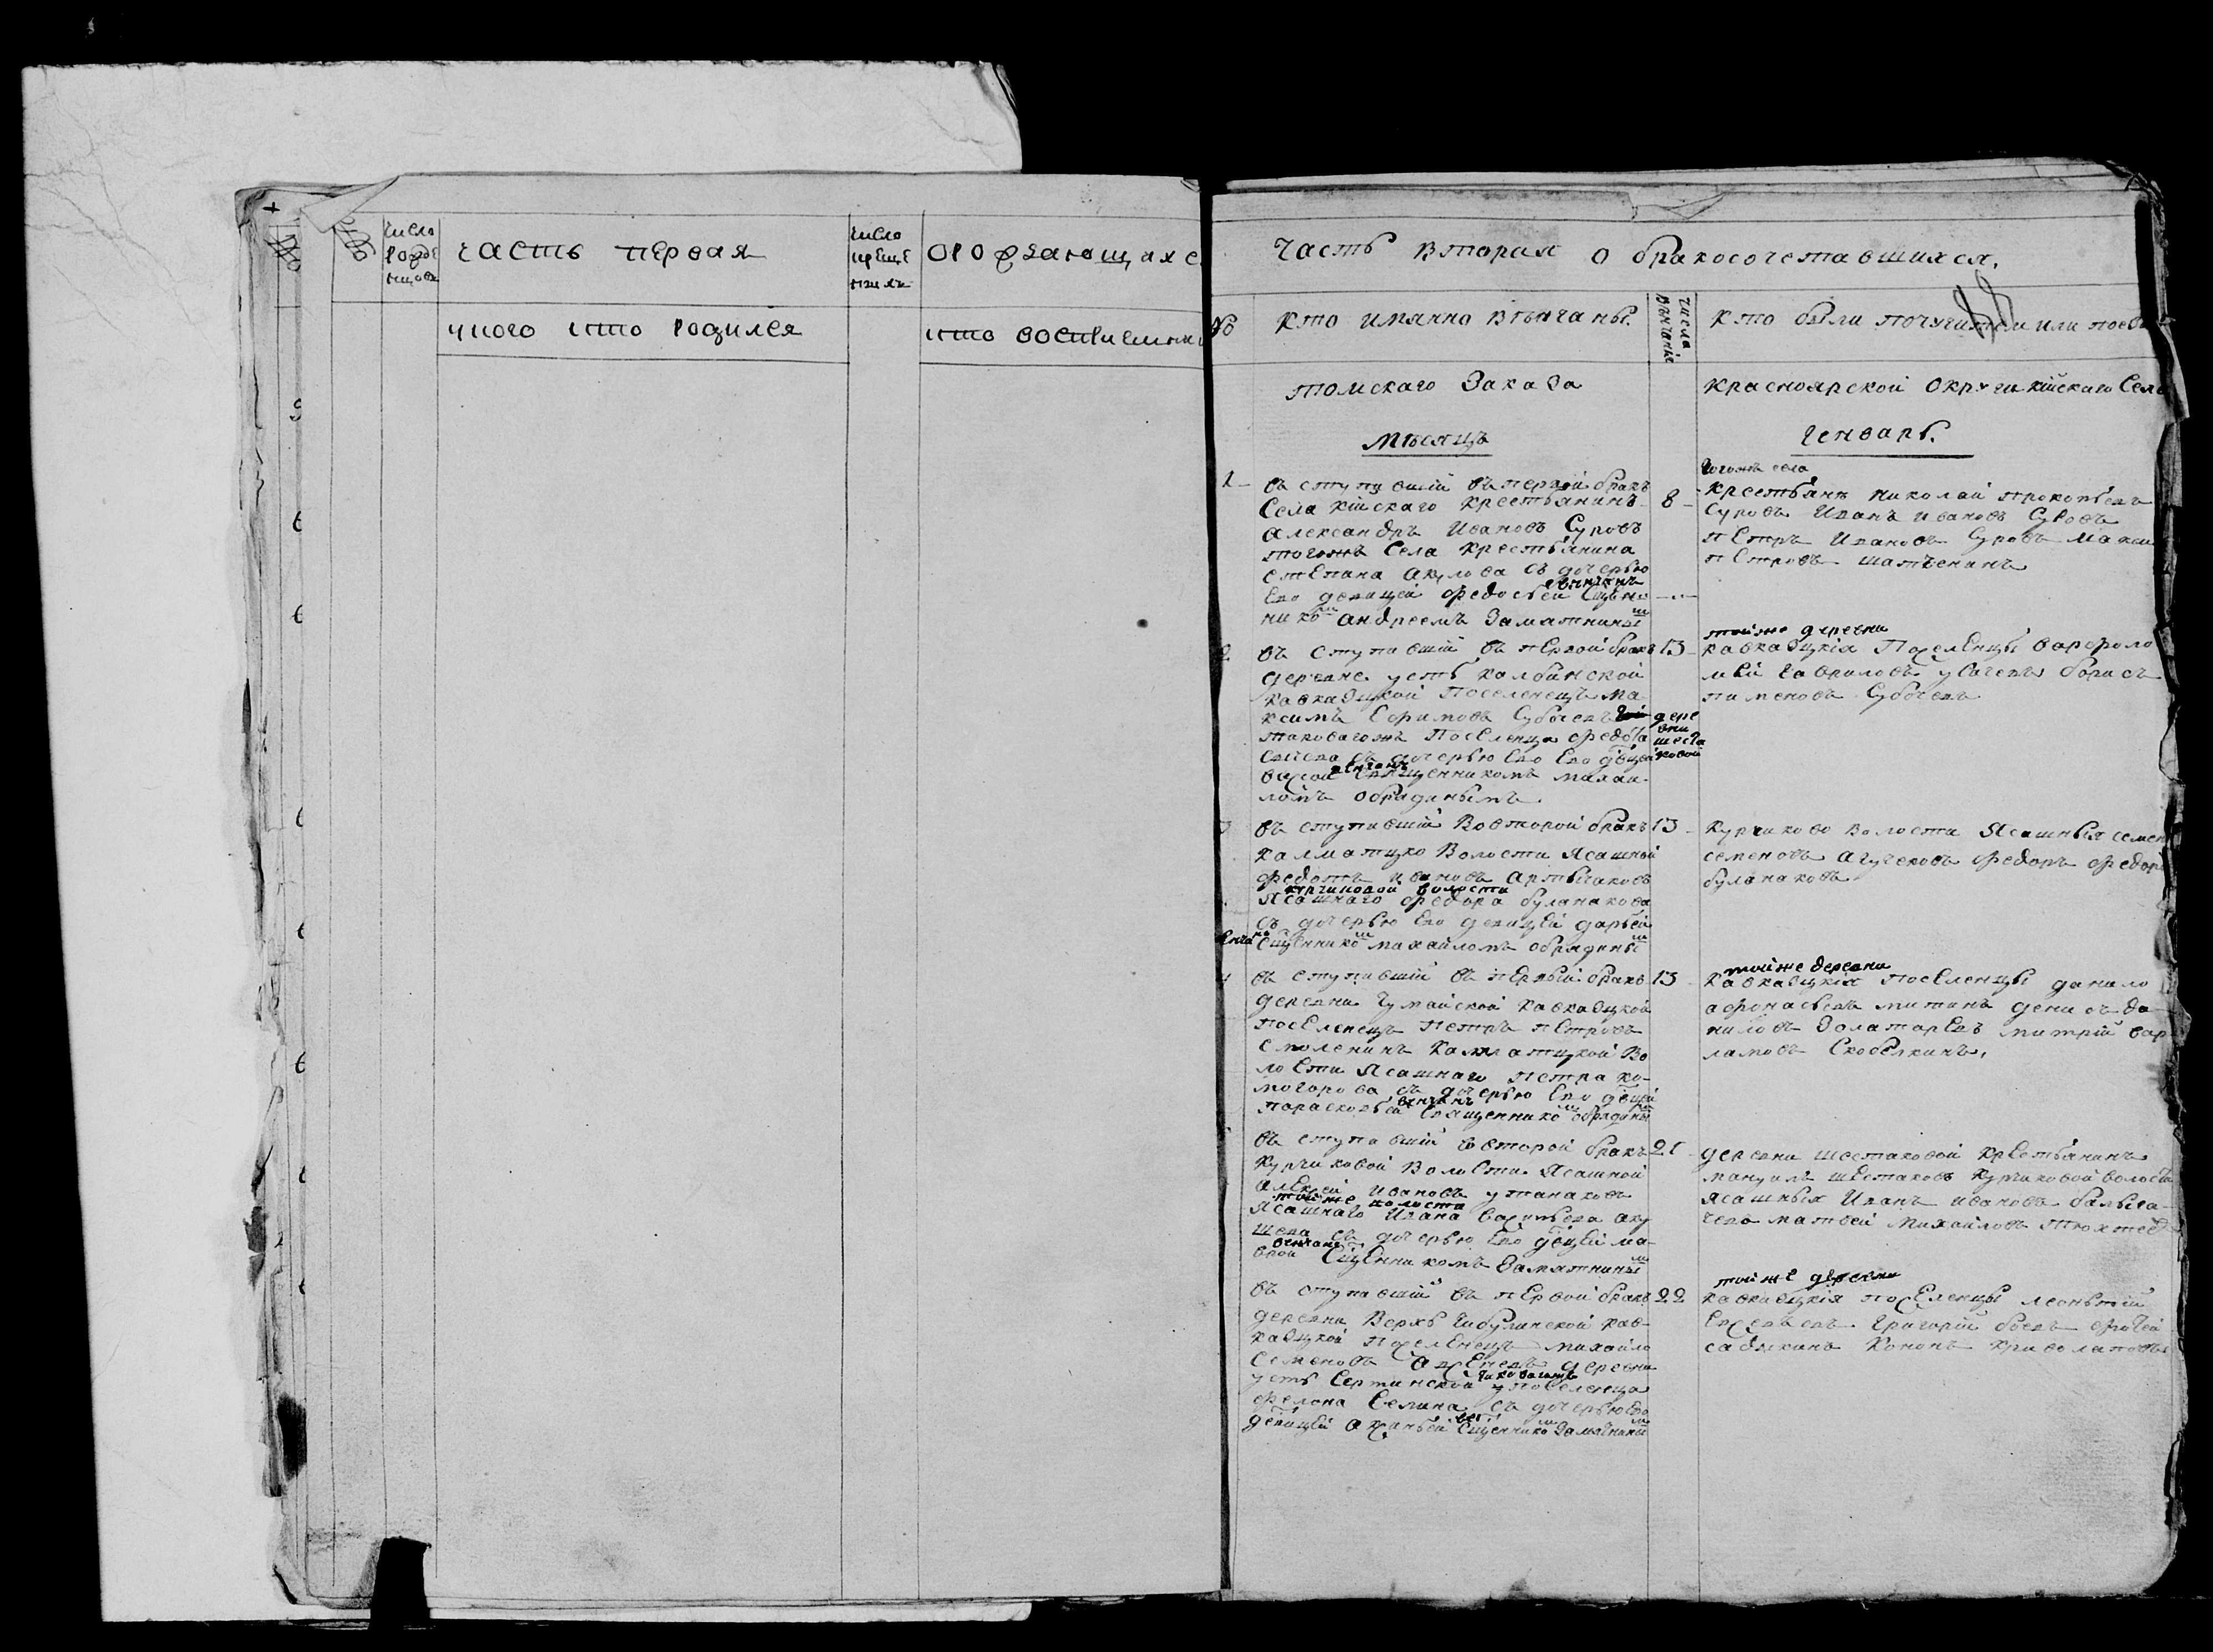 №
число
рожде
нцовъ
часть первая
число
креще
ния
о рождающихс
у кого кто родился
кто восприемники
Часть вторая о бракосочетавшихся.
№
кто имянно венчаны.
числа
венчание
кто были поручители или поез
томскаго Заказа
красноярской округи кійскаго Села
Месяцъ
Генварь.
1
въ ступившій въ первой бракъ
Села кійскаго крестьянинъ
александръ Ивановъ Суровъ
тогожъ Села крестьянина
степана акулова съ дочерью
Ево девицей федосьей венчанъ Сщен
нико андреемъ Замятнины
8
тогожъ села
крестьяне николай прокопьевъ
Суровъ Иванъ ивановъ Суровъ
петръ Ивановъ Суровъ макси
петровъ
2
въ ступившій въ первой бракъ
деревне усть колбинской
кавказцкой поселенецъ ма
ксимъ Ефимовъ Субочевъ
таковагожъ поселенца федота
съ дочерью Ево
венчанъ Священникомъ михаи
ломъ обрядинымъ.
13
дере
вни
шеста
ковой
тойже деревни
кавказцкія Поселенцы варфоло
мей гавриловъ борисъ
пименовъ Субочевъ
3
въ ступившій во второй бракъ
калмацко волости Ясашной
федотъ ивановъ артычаковъ
курчиковой волости
Ясашнаго федора буланакова
съ дочерью Ево девицей дарьей
венчанъ Сщенникомъ михайломъ обрядины
13
курчиково волости Ясашныя семен
семеновъ федоръ федоро
буланаковъ
4
въ ступившій въ первый бракъ
деревни Чумайской кавказцкой
поселенецъ петръ петровъ
Смоленинъ калмацкой во
лости Ясашнаго петра ко
могорова съ дочерью Ево девицей
парасковьей венчанъ Священнико обрядины
13
тойже деревни
кавказцкія поселенцы данило
афонасьевъ митинъ денисъ да
ниловъ Золотаревъ митрій вар
ламовъ Скобелкинъ.
въ ступившій второй бракъ
курчиковой волости Ясашной
алексей ивановъ утанаковъ
тойже волости
Ясашнаго Ивана васильева аку
шева съ дочерью Ево девицей ма
врой венчанъ Сщенникомъ Замятнины
21
деревни шестаковой крестьянинъ
мануилъ шестаковъ курчиковой волости
Ясашныя Иванъ ивановъ
матвей михайловъ
въ ступившій въ первой бракъ
деревни верхъ чибулинской кав
казцкой поселенецъ михайло
Семеновъ деревни
усть Сертинской таковагожъ поселенца
Селина съ дочерью Ево
девицей Сщеннико Замятнины
22
тойже деревни
кавказцкія поселенцы леонтій
Григорій
Кононъ криволаповъ